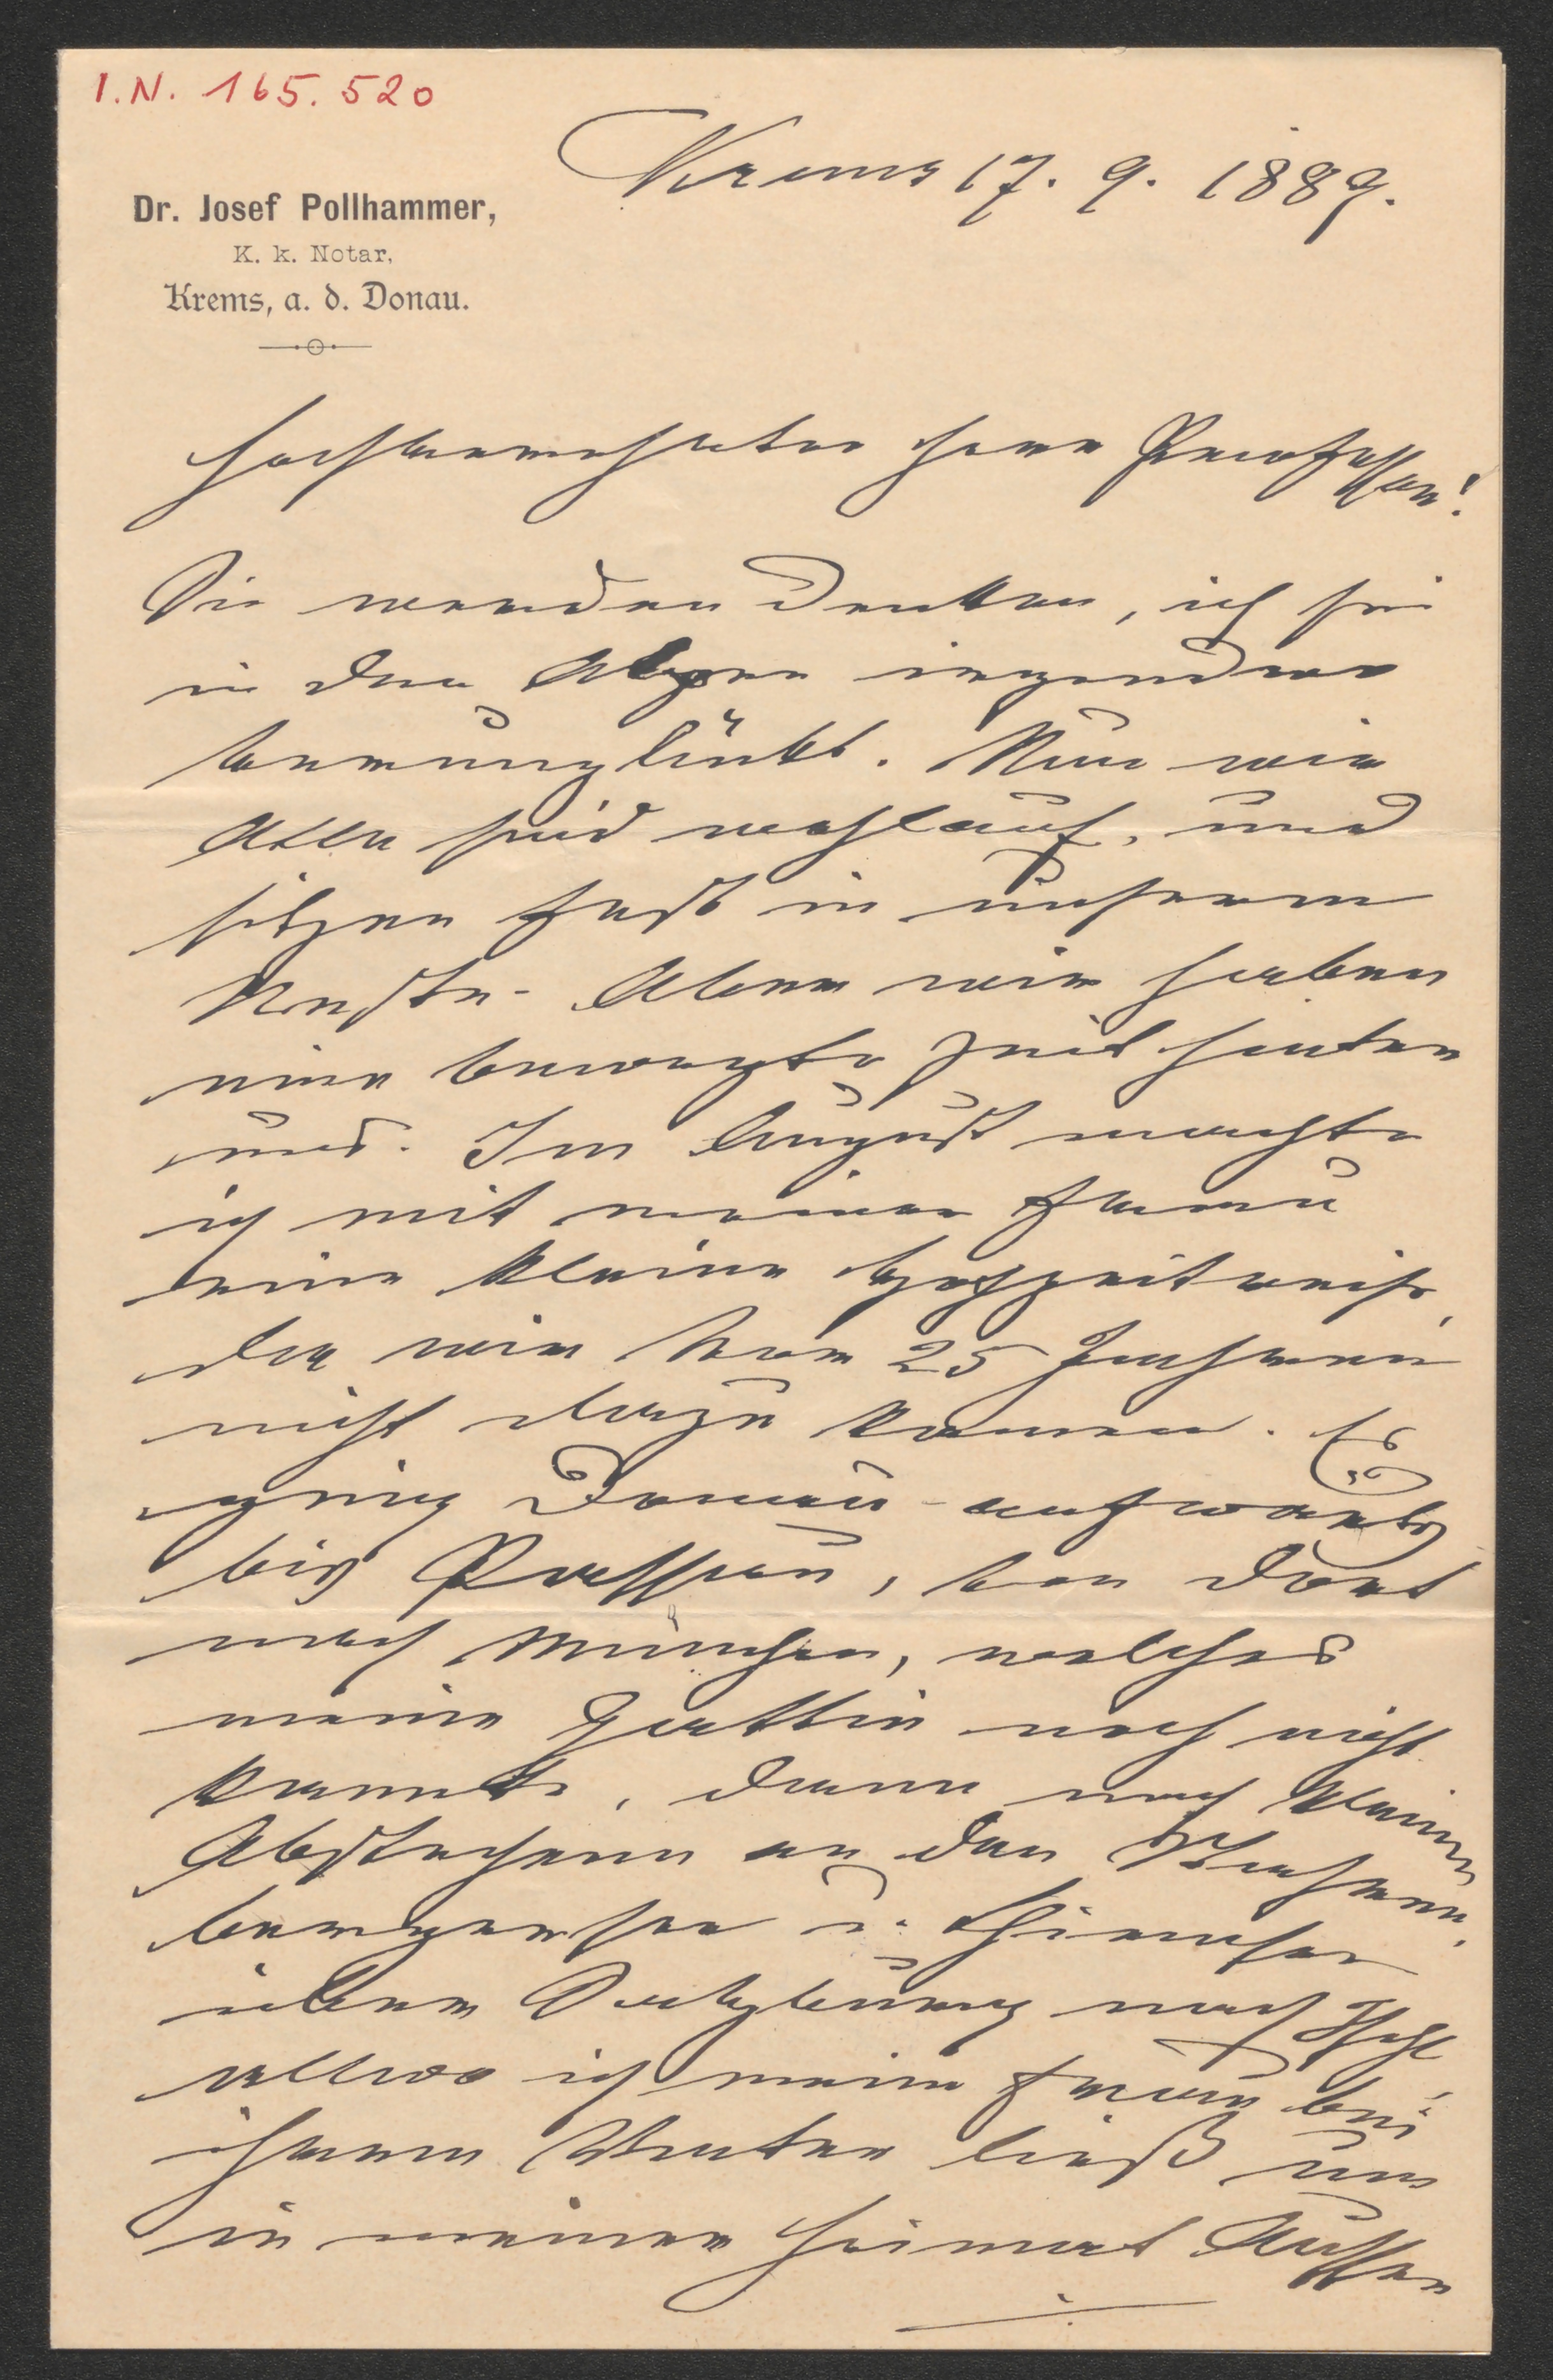 I.N. 165.520
Krems 17. 9. 1889.
Dr. Josef Pollhammer,
K. k. Notar,
Krems, a. d. Donau.
Hochverehrter Herr Professor!
Sie werden denken, ich sei
in den Alpen irgendwo
verunglückt. Nun wir
Alle sind wohlauf, und
sitzen fest in unserem
Neste. Aber wir haben
eine bewegte Zeit hinter
uns. Im August machte
ich mit meiner Frau
eine kleine Hochzeitreise,
da wir vor 25 Jahren
nicht dazu kamen. Es
ging Donau-aufwärts
bis Passau, von dort
nach München, welches
meine Gattin noch nicht
kannte, dann nach kleinen
Abstechern an den Starhem-
bergersee u. Chiemsee
über Salzburg nach Ischl,
allwo ich meine Frau bei
ihrem Vater ließ um
in meiner Heimat Aussee